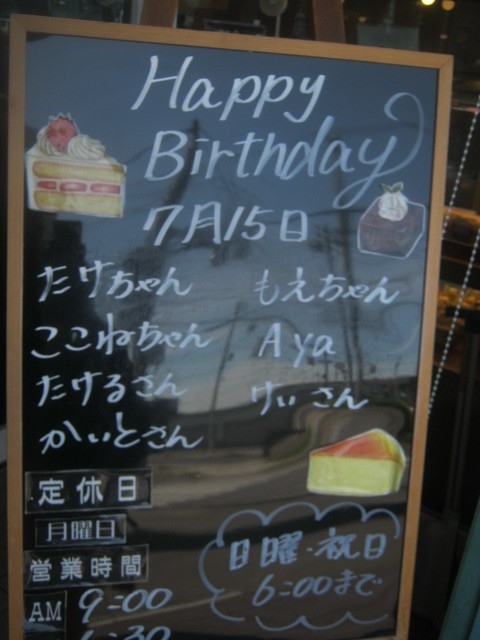 Happy
Birthday
7月15日
たけちゃん
もえちゃん
ここねちゃん
Aya
たけるさん
けいさん
かいとさん
定休日
月曜日
営業時間
AM 9:00
6:30
日曜・祝日
6:00まで